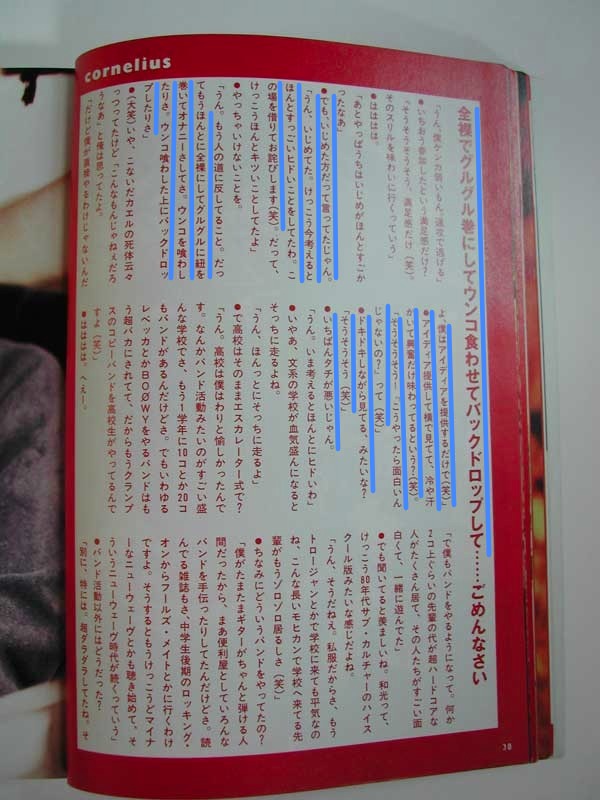 cornelius
全裸でグルグル巻にしてウンコ食わせてバックドロップして……ごめんなさい
「うん。僕ケンカ弱いもん。速攻で逃げる」
●いちおう参加したという満足感だけ?
「そうそうそうそう。満足感だけ(笑)。
そのスリルを味わいに行くっていう」
●はははは。
「あとやっぱうちはいじめがほんとすごか
ったなあ」
●でも、いじめた方だって言ってたじゃん。
「うん。いじめてた。けっこう今考えると
ほんとすっごいヒドいことをしてたわ。こ
の場を借りてお詫びします(笑)。だって、
けっこうほんとキツいことしてたよ」
●やっちゃいけないことを。
「うん。もう人の道に反してること。だっ
てもうほんとに全裸にしてグルグルに紐を
巻いてオナニーさしてさ。ウンコを喰わし
たりさ。ウンコ喰わした上にバックドロッ
プしたりさ」
●(大笑)いや、こないだカエルの死体云々
っつってたけど「こんなもんじゃねえだろ
うなあ」と俺は思ってたよ。
「だけど僕が直接やるわけじゃないんだ
よ、僕はアイディアを提供するだけで(笑)」
●アイディア提供して横で見てて、冷や汗
かいて興奮だけ味わってるという?(笑)。
「そうそうそう!『こうやったら面白いん
じゃないの?』って(笑)」
●ドキドキしながら見てる、みたいな?
「そうそうそう(笑)」
●いちばんタチが悪いじゃん。
「うん。いま考えるとほんとにヒドいわ」
●いやあ、文系の学校が血気盛んになると
そっちに走るよね。
「うん、ほんっとにそっちに走るよ」
●で高校はそのままエスカレーター式で?
「うん。高校は僕はわりと愉しかったんで
す。なんかバンド活動みたいのがすごい盛
んな学校でさ、もう1学年に10コとか20コ
もバンドがあるんだけどさ。でもいわゆる
レベッカとかBOØWYをやるバンドはも
う超バカにされてて、だからもうクランプ
スのコピーバンドを高校生がやってるんで
すよ(笑)」
●はははは、へぇー。
「で僕もバンドをやるようになって。何か
2コ上ぐらいの先輩の代が超ハードコアな
人がたくさん居て、その人たちがすごい面
白くて、一緒に遊んでた」
●でも聞いてると羨ましいね。和光って、
けっこう80年代サブ・カルチャーのハイス
クール版みたいな感じだよね。
「うん、そうだねえ。私服だからさ、もう
トロージャンとかで学校に来ても平気なの
ね、こんな長いモヒカンで学校へ来てる先
輩がもうゾロゾロ居るしさ(笑)」
●ちなみにどういうバンドをやってたの?
「僕がたまたまギターがちゃんと弾ける人
間だったから、まあ便利屋としていろんな
バンドを手伝ったりしてたんだけどさ。読
んでる雑誌もさ、中学生後期のロッキング・
オンからフールズ・メイトとかに行くわけ
ですよ。そうするともうけっこうどマイナ
ーなニューウェーヴとかも聴き始めて、そ
ういうニューウェーヴ時代が続くっていう」
●バンド活動以外にはどうだった?
「別に、特には。超ダラダラしてたね。そ
30